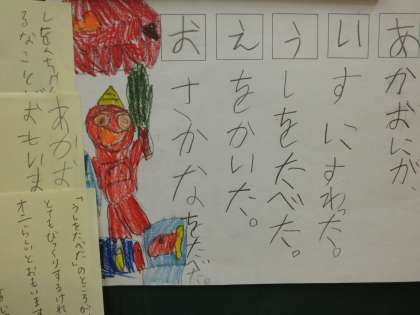 あかおにが
いすにすわった。
うしをたべた。
えをかいた。
おさかなをたべた。
るなこと
あかお
おもいま
「うしをたべた」のところが
とてもびっくりするけれ
オニらしいとおもいます